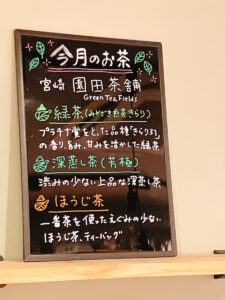 今月のお茶
宮崎 園田茶舗
Green Tea Fields
緑茶
プラチナ賞をとった品種"きらり31"
の香り、旨み、甘みを活かした緑茶
深蒸し茶
渋みの少ない上品な深蒸し茶
ほうじ茶
一番茶を使ったえぐみの少ない
ほうじ茶、ティーバッグ